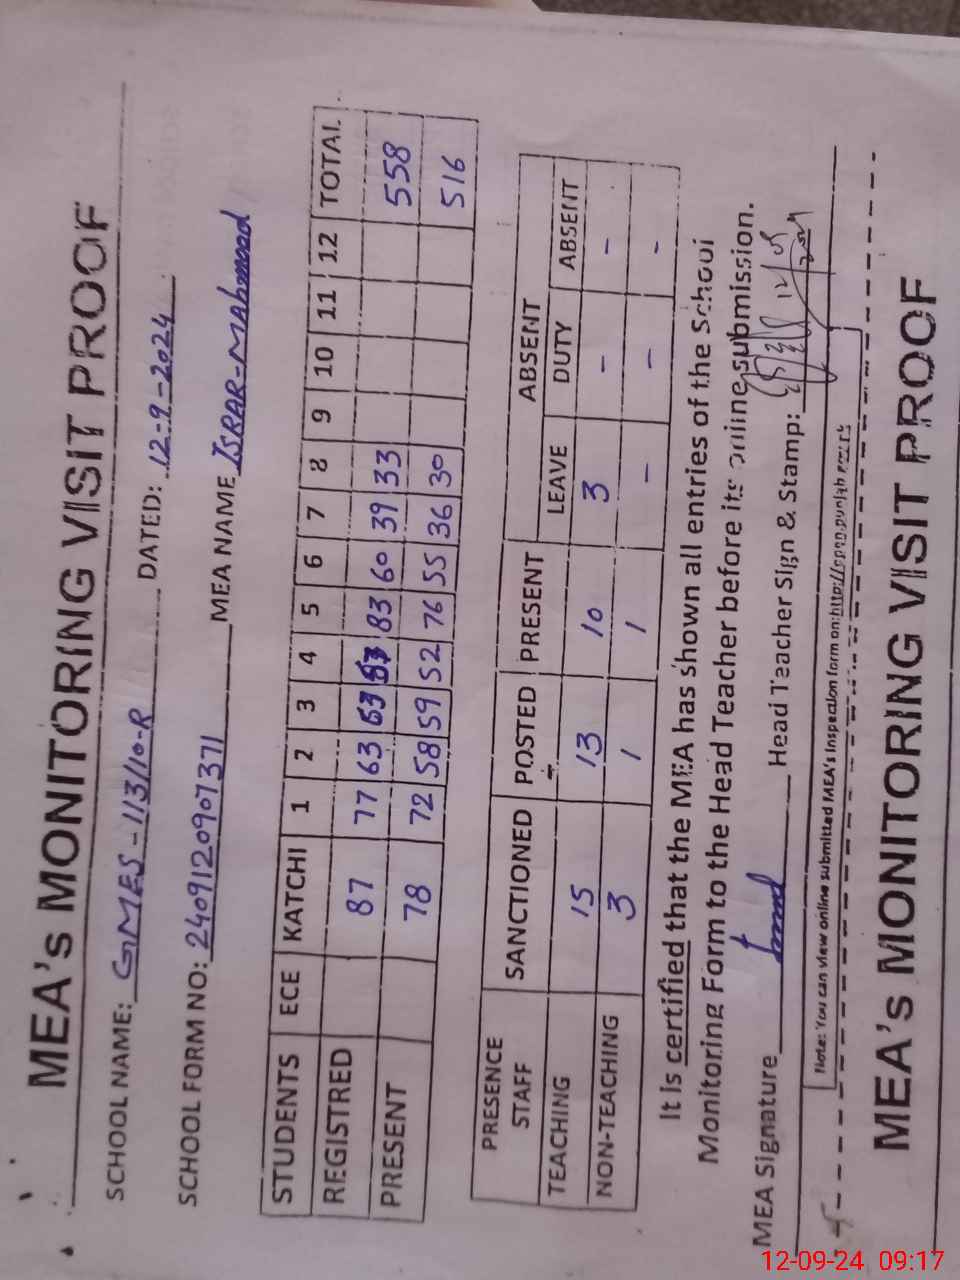 MEA's MONITORING VISIT PROOF
SCHOOL NAME: GMES-113/10-R DATED: 12-9-2024
SCHOOL FORM NO: 2409120907371 MEA NAME ISRAR-MAhmood
STUDENTS ECE KATCHI 1 2 3 4 5 6 7 8 9 10 11 12 TOTAL
REGISTRED 87 77 63 63 53 83 60 39 33 558
PRESENT 78 72 58 59 52 76 55 36 30 516
PRESENCE STAFF SANCTIONED POSTED PRESENT ABSENT
LEAVE DUTY ABSENT
TEACHING 15 13 10 3 - -
NON-TEACHING 3 1 1 - - -
It is certified that the MEA has shown all entries of the School
Monitoring Form to the Head Teacher before its online submission.
MEA Signature Head Teacher Sign & Stamp:
Note: You can view online submitted MEA's Inspection form on:http://
MEA's MONITORING VISIT PROOF
12-09-24 09:17